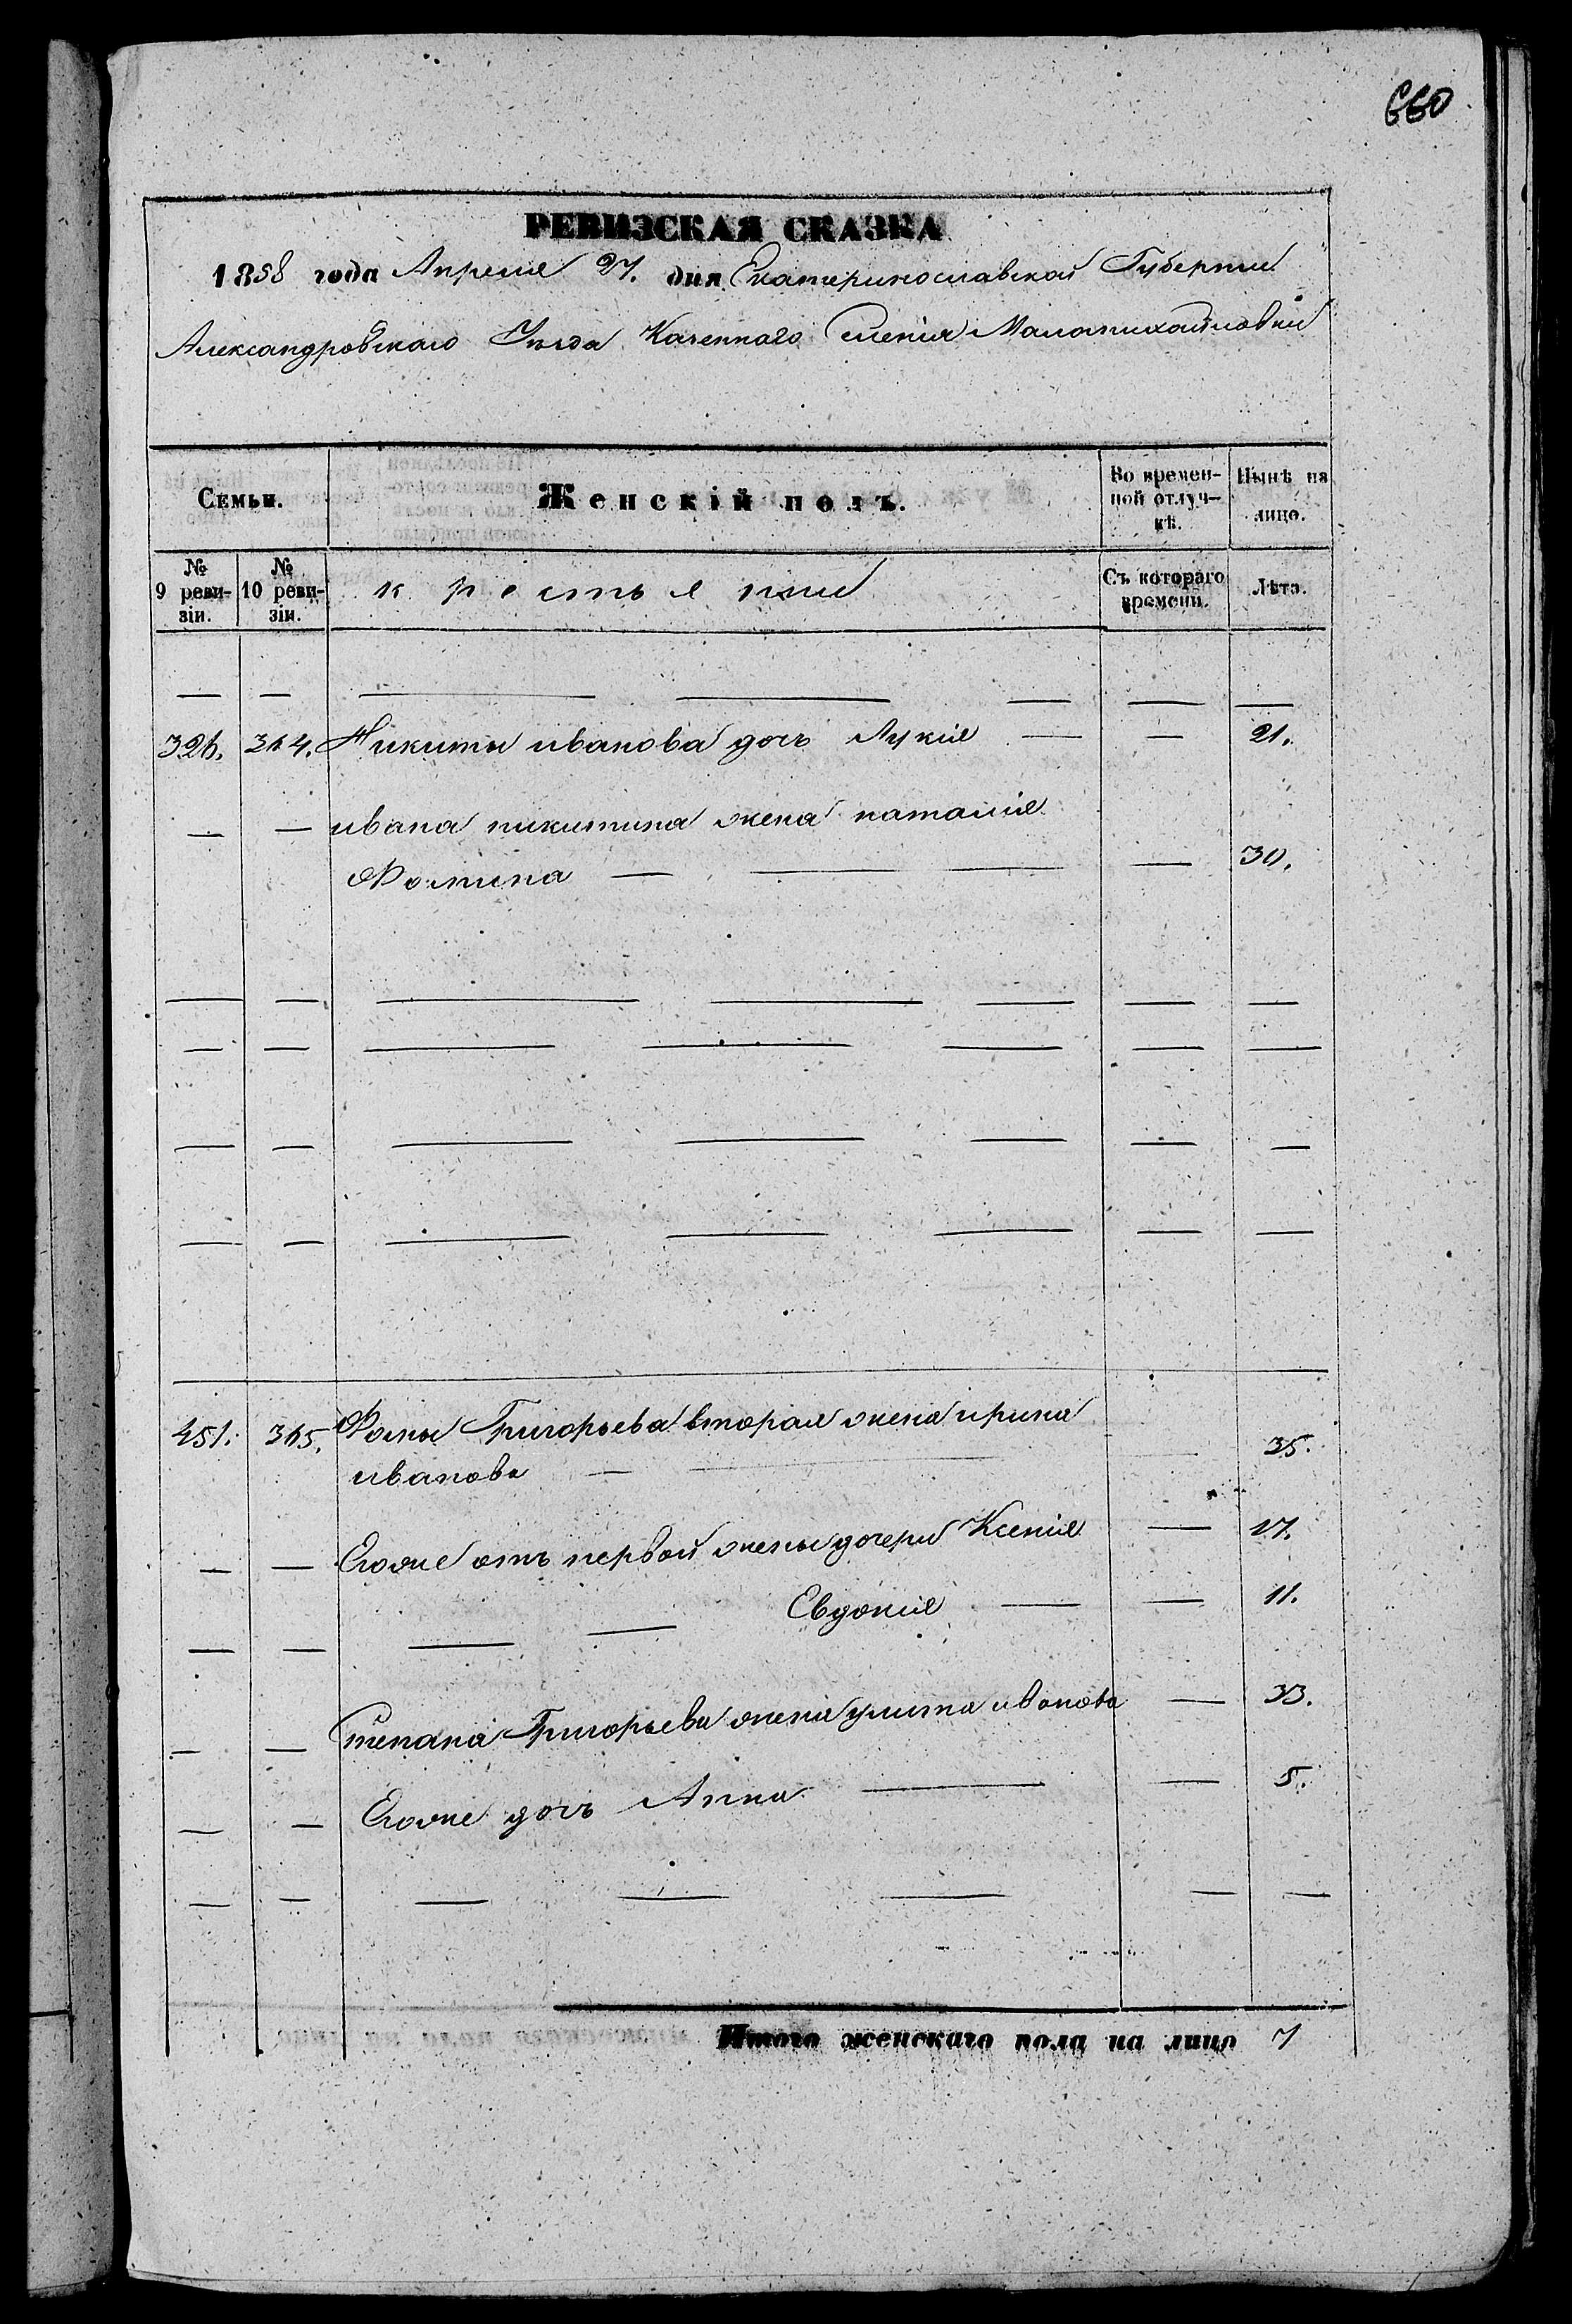 660
РЕВИЗСКАЯ СКАЗКА
1858 года Апреля 27. дня Екатеринославской Губернии
Александровскаго Уезда Казеннаго Селенія Маломихайловки
Семьи. Женскій полъ. Во времен- Нынѣ на
ной отлуч- лицо.
кѣ.
№ 9 реви- зіи. № 10 реви- зіи. крестьяне Съ котораго времени. Лѣта.
— — — — — — —
326. 364. Никиты иванова дочь Лукия — — 21.
— — ивана никитина жена наталия
Фомина — — — — 30.
— — — — — — —
— — — — — — —
— — — — — — —
— — — — — — —
451. 365. Фомы Григорьева вторая жена ирина
иванова — — — 35.
— — Егоже отъ первой жены дочери Ксения — 17.
— — — — Евдокия — — 11.
— — Степана Григорьева жена улита иванова — 33.
— — Егоже дочь Анна — — 5.
— — — — — — —
Итого женскаго пола на лицо 7